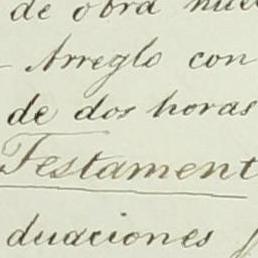 de obra nue
- Arreglo con
de dos horas
Testament
duaciones